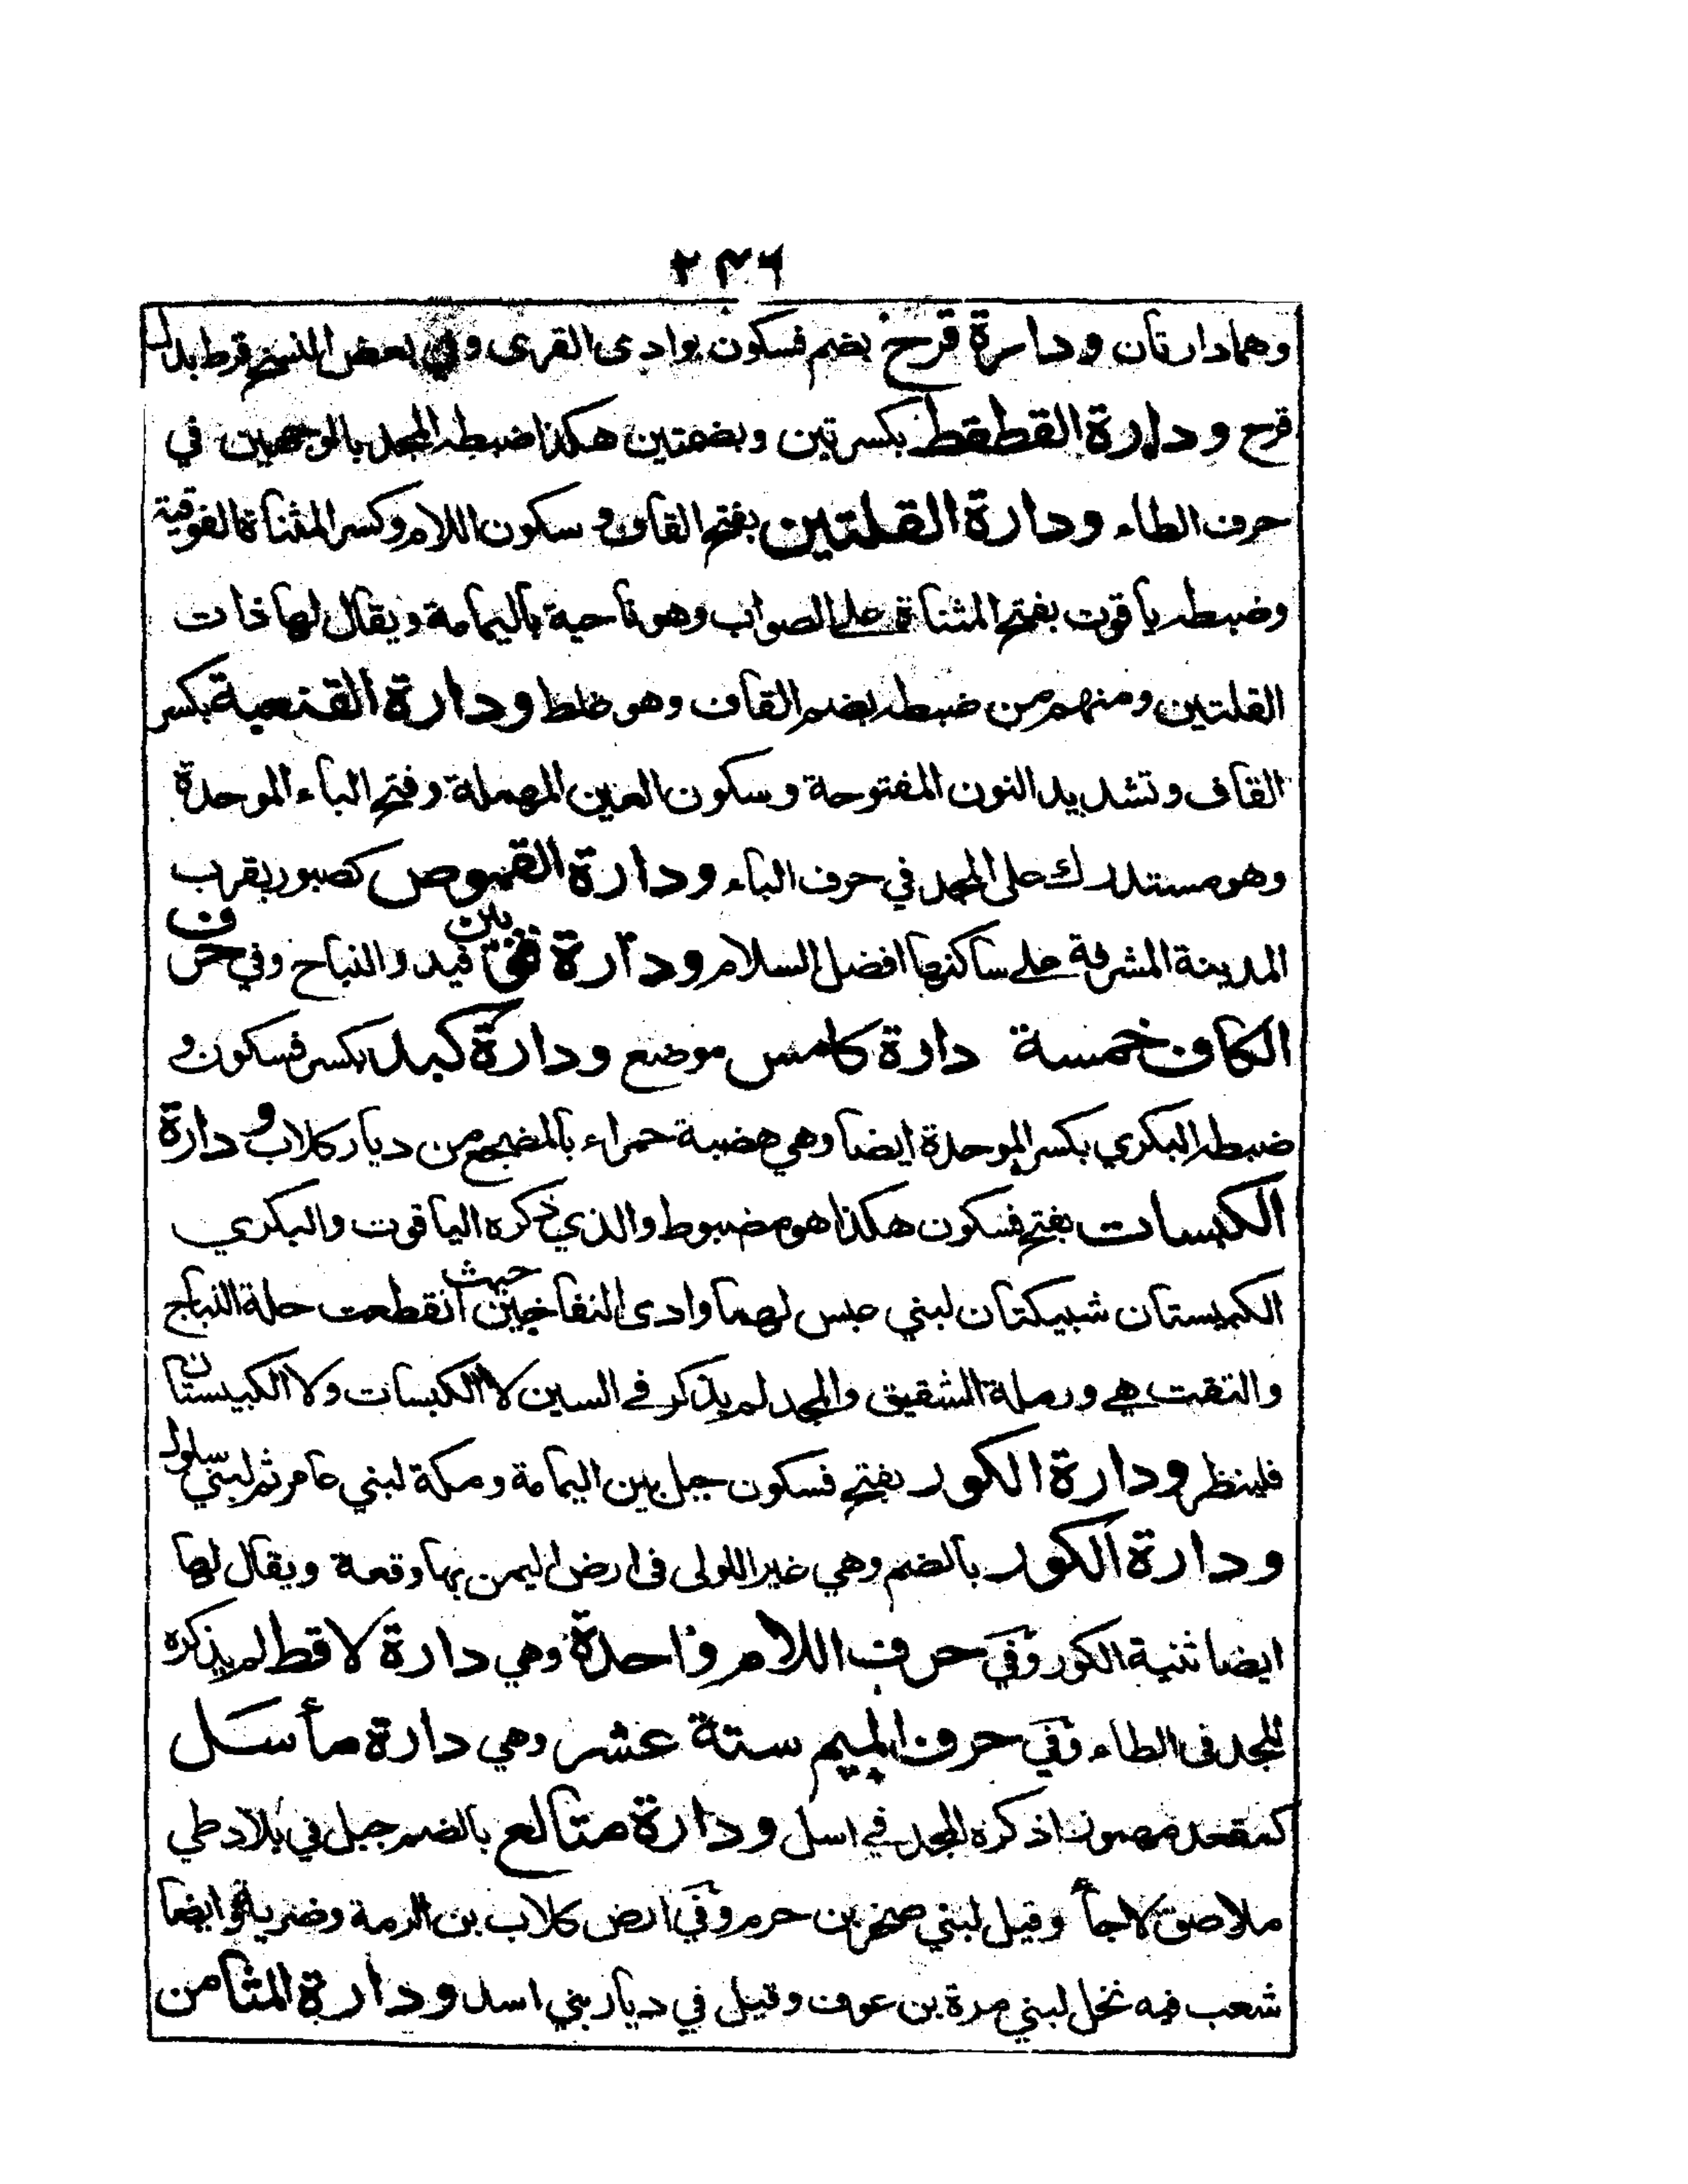 ٢٣٦
وهما دارتان ودارة قرح بضم فسكون بوادى القرى وفي بعض النسخ قرط بدل
قرح ودارة القطقط بكسرتين وبضمتين هكذا ضبطه المجد بالوجهين في
حرف الطاء ودارة القلتين بفتح القاف و سكون اللام وكسر المثناة الفوقية
وضبطه ياقوت بفتح المثناة على الصواب وهو ناحية باليمامة ويقال لها ذات
القلتين ومنهم من ضبطه بضم القاف وهو غلط ودارة القنعبة بكسر
القاف وتشديد النون المفتوحة وسكون العين المهملة وفتح الباء الموحدة
وهو مستدرك على المجد في حرف الباء ودارة القموص كصبور بقرب
المدينة المشرفة على ساكنها افضل السلام ودارة قوّ بين فيد والنباح وفي حرف
الكاف خمسة دارة كامس موضع ودارة كبد بكسر فسكون و
ضبطه البكري بكسر الموحدة ايضا وهي هضبة حمراء بالمضجع من ديار كلاب و دارة
الكبسات بفتح فسكون هكذا هو مضبوط والذي ذكره الياقوت والبكري
الكبيستان شبيكتان لبني عبس لهما وادى النفاخين حيث انقطعت حلة النباج
والتقت هي ورملة الشقيق والمجد لم يذكر في السين لا الكبسات ولا الكبيستان
فلينظر ودارة الكور بفتح فسكون جبل بين اليمامة ومكة لبني عامر ثم لبني سلول
ودارة الكور بالضم وهي غير اللولى فى ارض اليمن بها وقعة ويقال لها
ايضا ثنية الكور وفي حرف اللام واحدة وهي دارة لاقط لم يذكره
المجد فى الطاء وفي حرف الميم ستة عشر وهي دارة مأسَل
كمقعد مهموزا ذكره المجد في اسل ودارة متالع بالضم جبل في بلاد طي
ملاصق لاجأ وقيل لبني صخر بن حرم وفي ارض كلاب بن الرمة وضرية وايضا
شعب فيه نخل لبني مرة بن عوف وقيل في ديار بني اسد ودارة المثامن